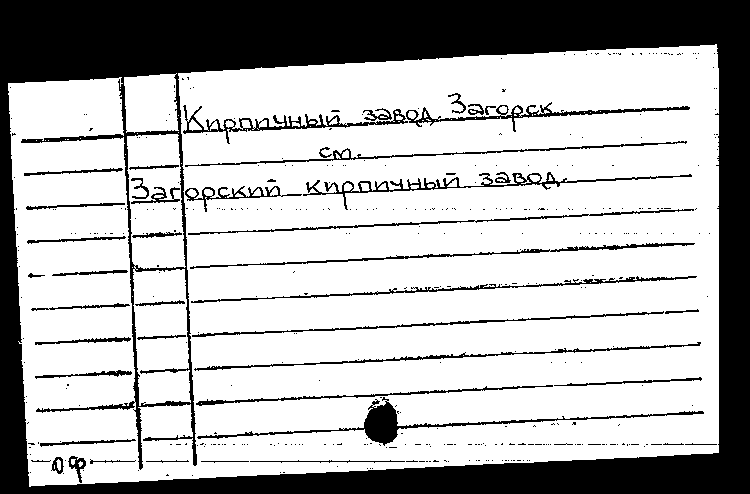 Кирпичный завод. Загорск
см.
Загорский кирпичный завод.
оф.